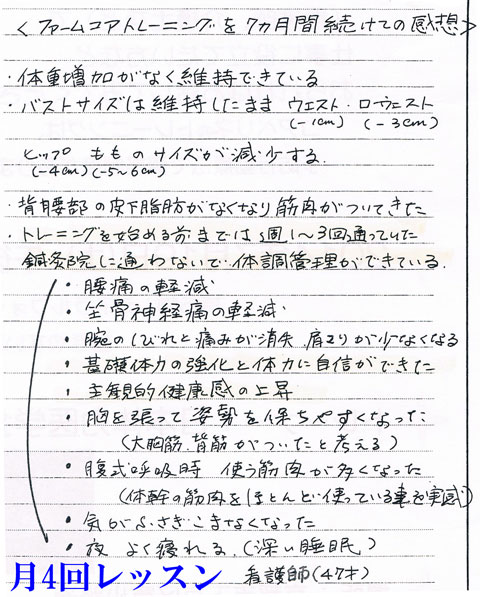 ＜ファームコアトレーニングを7カ月間続けての感想＞
・体重増加がなく維持できている
・バストサイズは維持したまま ウエスト・ローウエスト
(-1cm) (-3cm)
ヒップ もものサイズが減少する.
(-4cm)(-5~6cm)
・背腰部の皮下脂肪がなくなり筋肉がついてきた
・トレーニングを始める前までは週1~3回通っていた
鍼灸院に通わないで体調管理ができている.
・腰痛の軽減
・坐骨神経痛の軽減
・腕のしびれと痛みが消失 肩こりが少なくなる
・基礎体力の強化と体力に自信ができた
・主観的健康感の上昇
・胸を張って姿勢を保ちやすくなった
(大胸筋.背筋がついたと考える)
・腹式呼吸時 使う筋肉が多くなった
(体幹の筋肉をほとんど使っている事を実感)
・気がふさぎこまなくなった
・夜 よく寝れる.(深い睡眠)
月4回レッスン 看護師(47才)